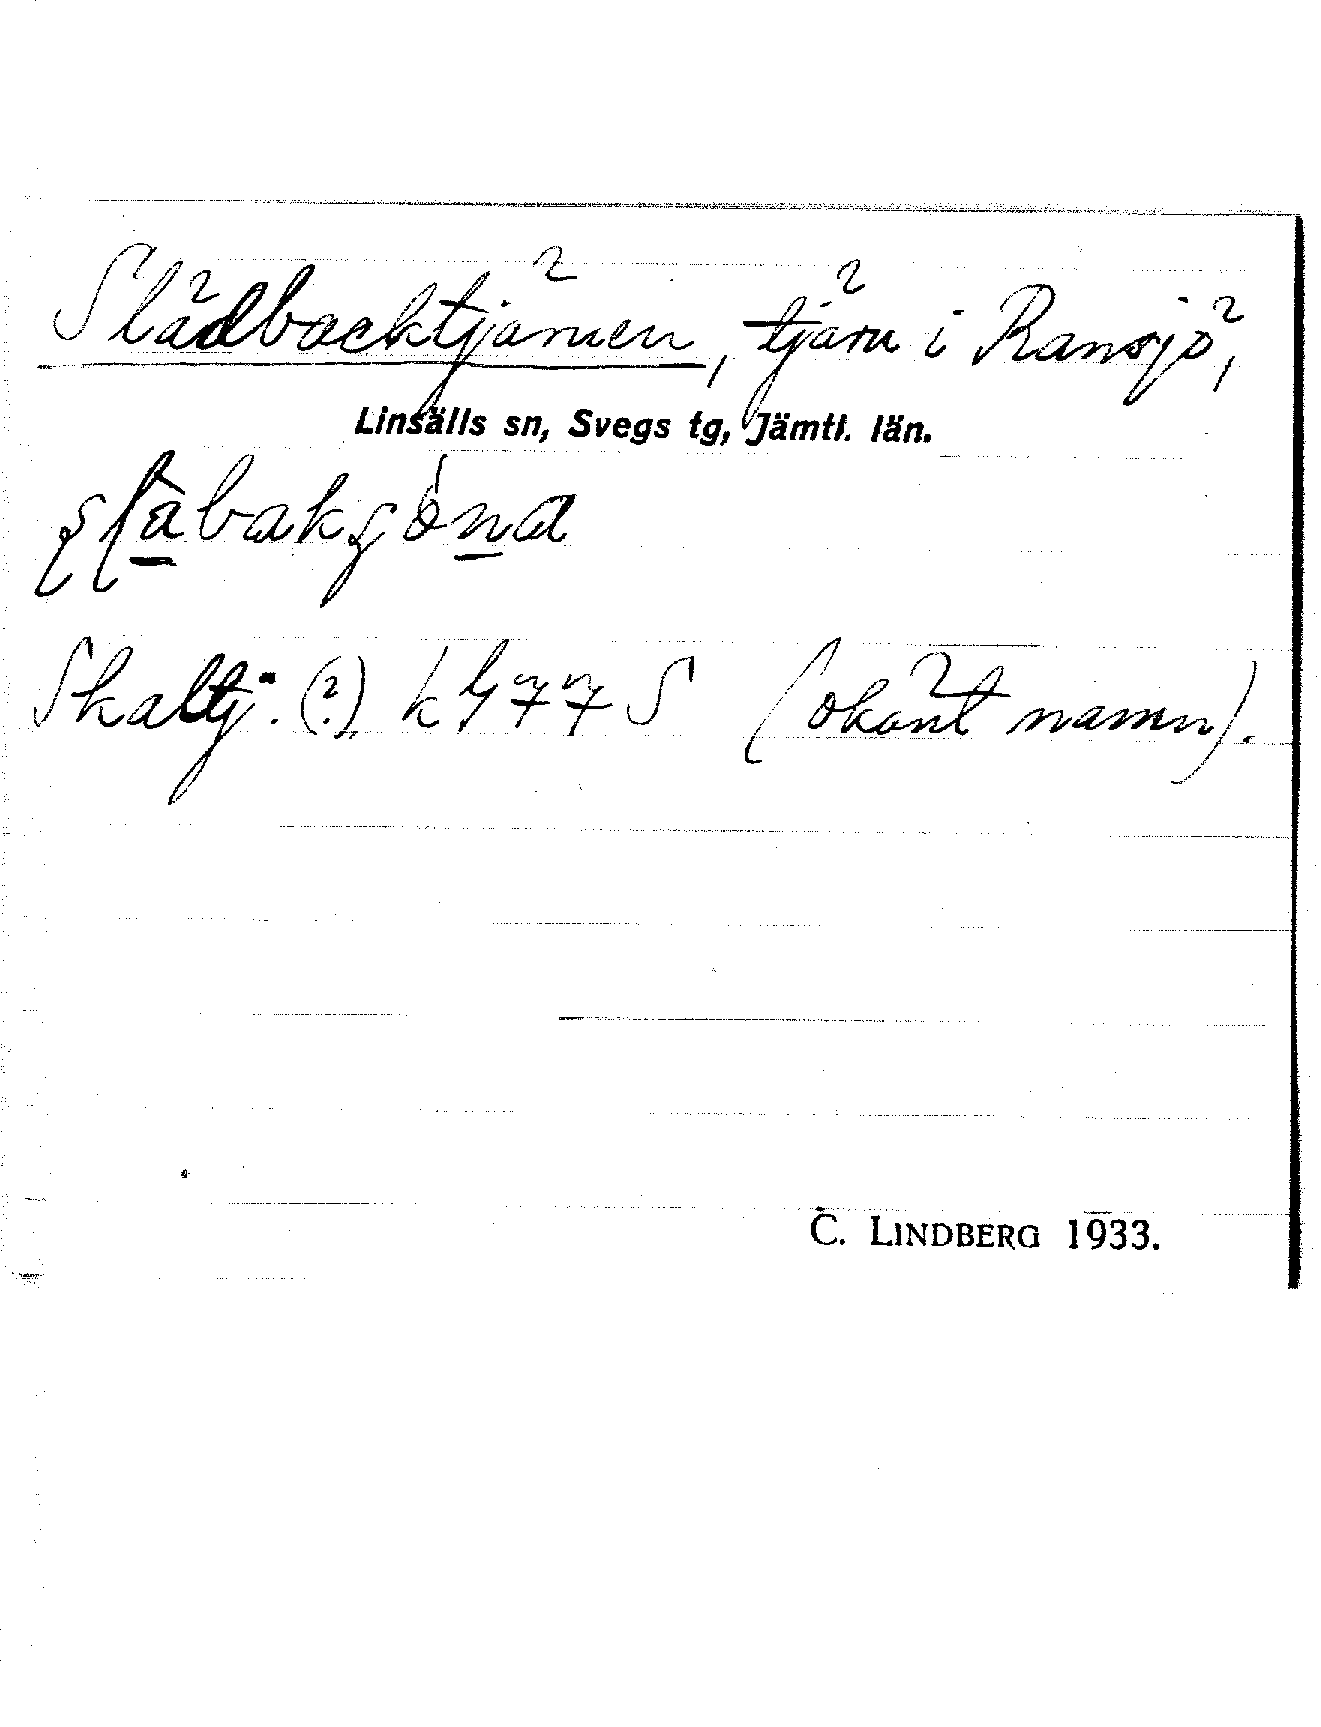 Slädbacktjärnen, tjärn i Ransjö,
Linsälls sn, Svegs tg, Jämtl. län.
Skaltj. (?) k 477 S (okänt namn).
C. LINDBERG 1933.